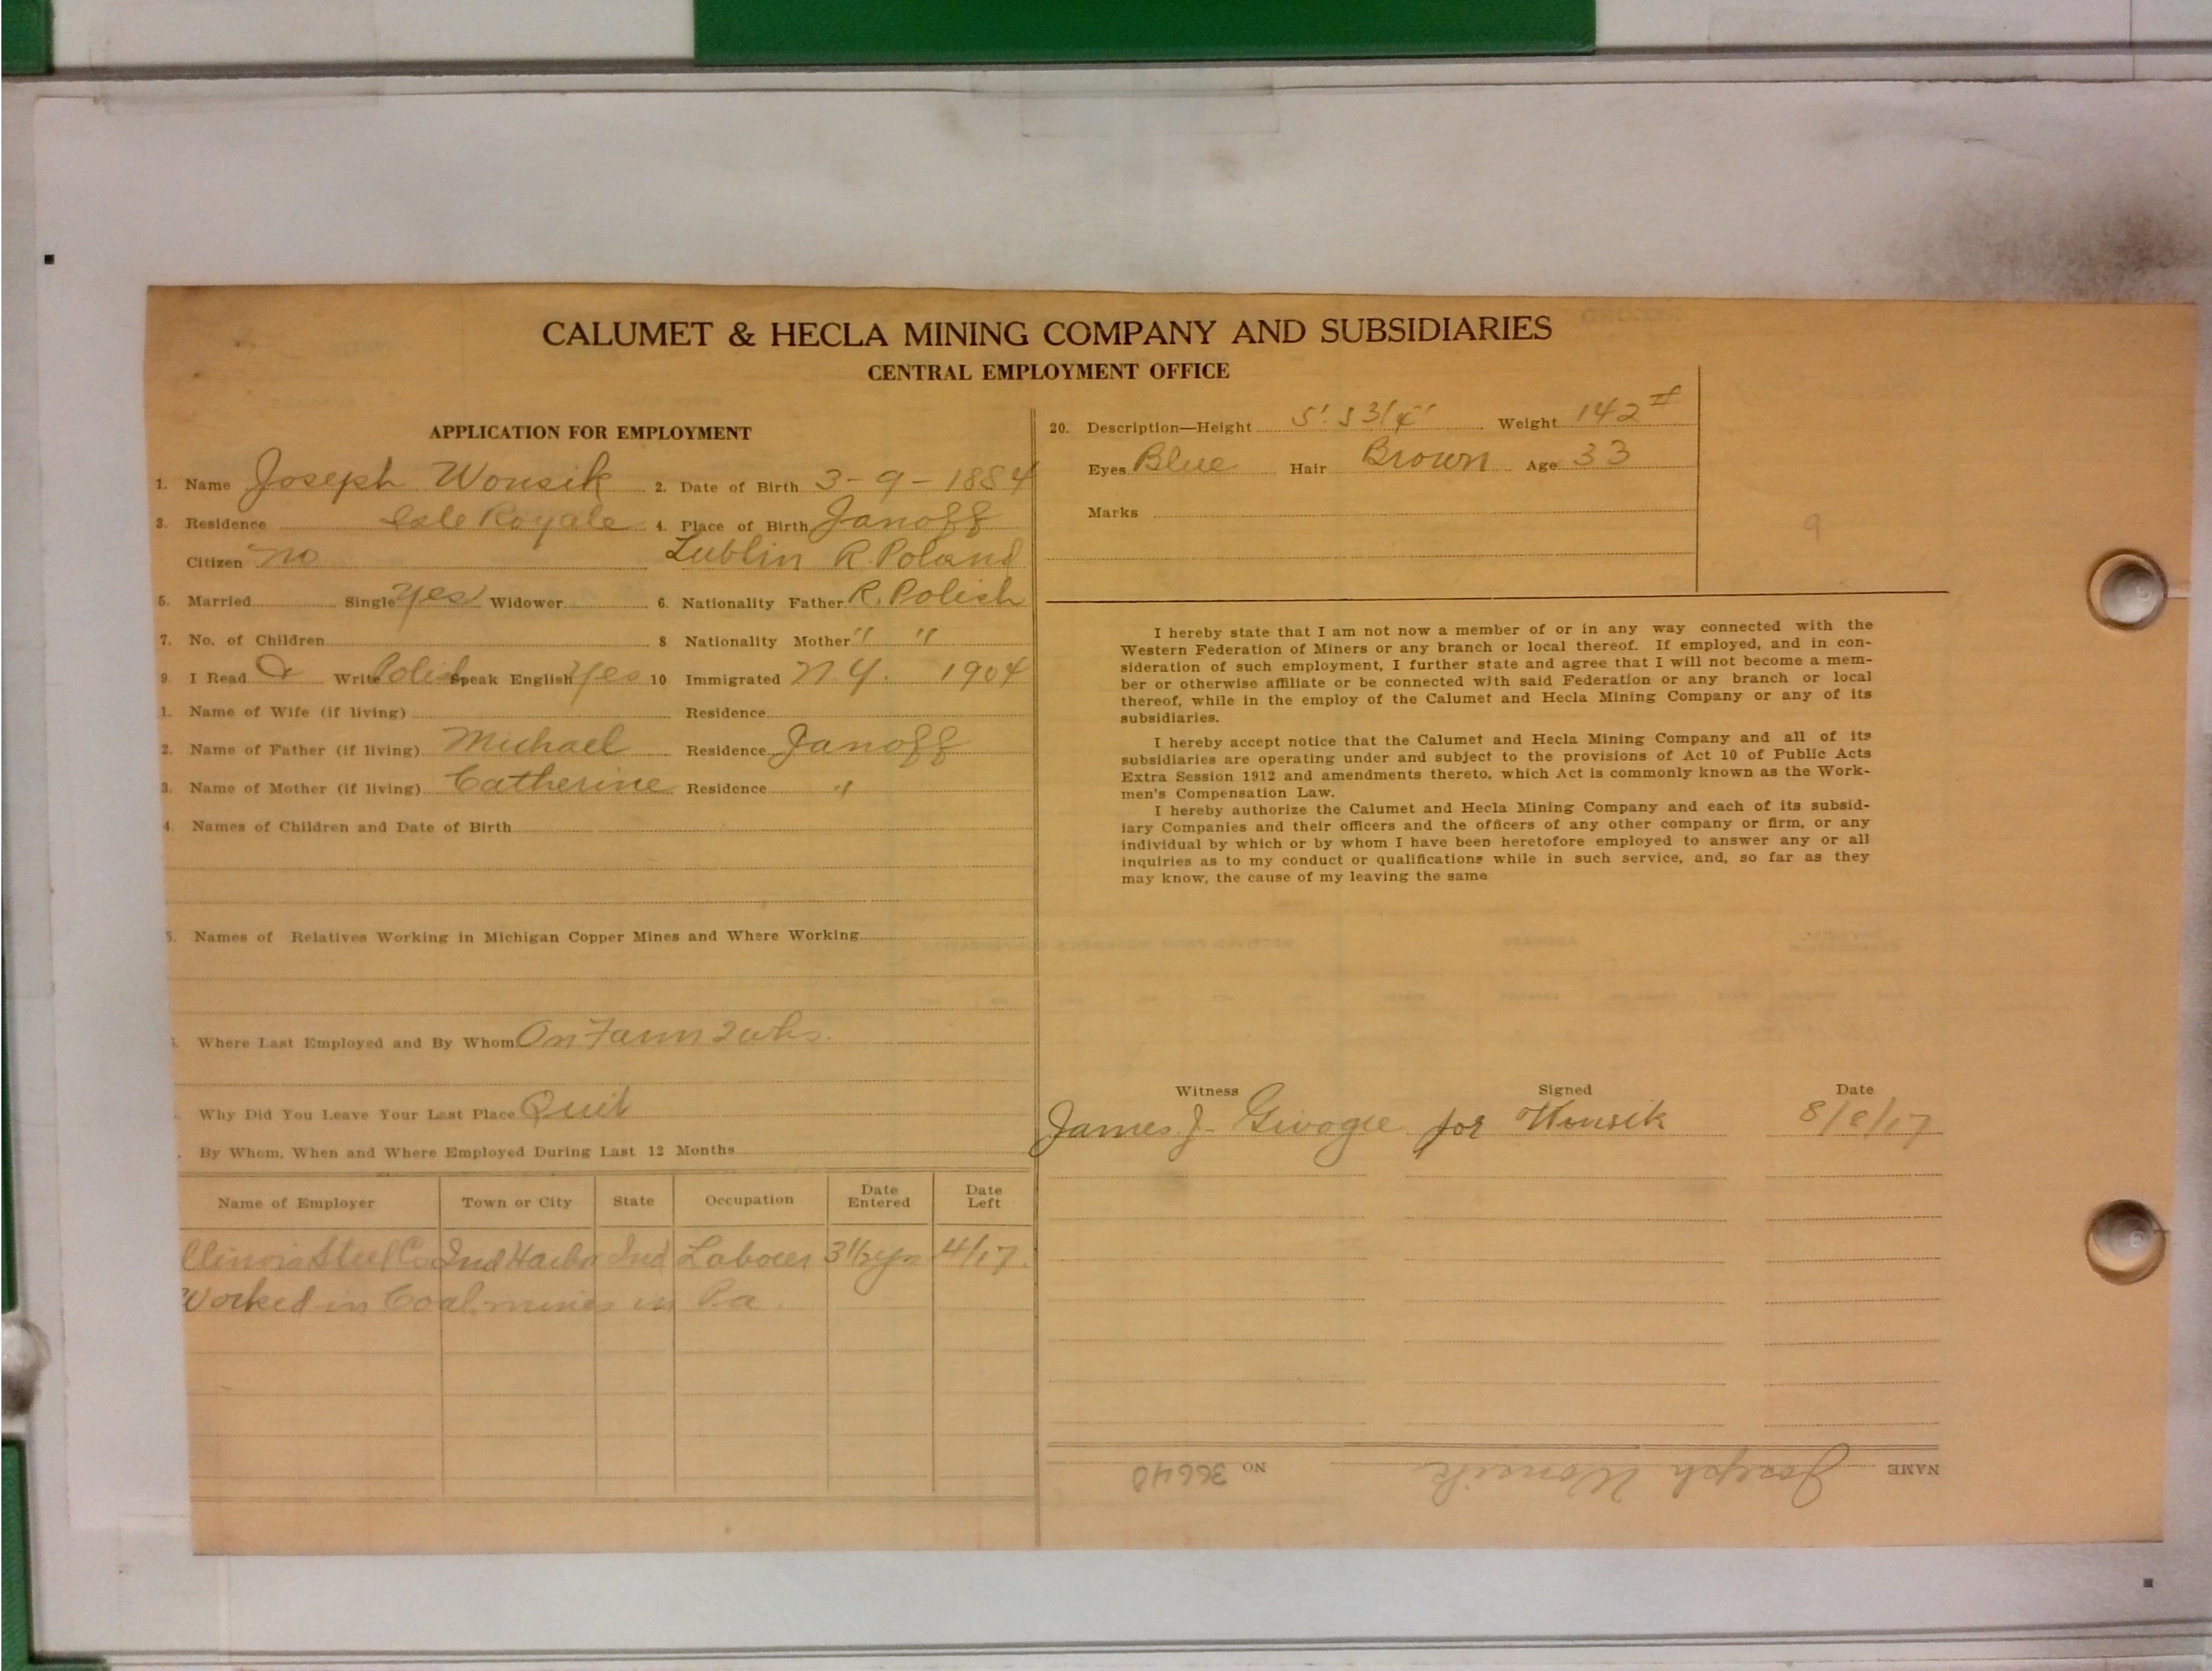 CALUMET & HECLA MINING COMPANY AND SUBSIDIARIES
CENTRAL EMPLOYMENT OFFICE
APPLICATION FOR EMPLOYMENT
1. Name Joseph Wonsik 2. Date of Birth 3-9-1884
3. Residence Isle Royale 4. Place of Birth Janoff
Citizen no Lublin R. Poland
5. Married Single yes Widower 6. Nationality Father R. Polish
7. No. of Children 8 Nationality Mother " "
9. I Read & Write Polish Speak English yes 10 Immigrated N.Y. 1904
1. Name of Wife (if living) Residence
2. Name of Father (if living) Michael Residence Janoff
3. Name of Mother (if living) Catherine Residence "
4. Names of Children and Date of Birth
5. Names of Relatives Working in Michigan Copper Mines and Where Working
Where Last Employed and By Whom On Farm 2 wks.
Why Did You Leave Your Last Place Quit
By Whom, When and Where Employed During Last 12 Months
Name of Employer Town or City State Occupation Date Entered Date Left
Illinois Steel Co Ind Harbor Ind Laborer 3 1/2 yrs 4/17.
Worked in Coal mines in Pa.
20. Description—Height 5' 5 3/4" Weight 142 #
Eyes Blue Hair Brown Age 33
Marks
9
I hereby state that I am not now a member of or in any way connected with the
Western Federation of Miners or any branch or local thereof. If employed, and in con-
sideration of such employment, I further state and agree that I will not become a mem-
ber or otherwise affiliate or be connected with said Federation or any branch or local
thereof, while in the employ of the Calumet and Hecla Mining Company or any of its
subsidiaries.
I hereby accept notice that the Calumet and Hecla Mining Company and all of its
subsidiaries are operating under and subject to the provisions of Act 10 of Public Acts
Extra Session 1912 and amendments thereto, which Act is commonly known as the Work-
men's Compensation Law.
I hereby authorize the Calumet and Hecla Mining Company and each of its subsid-
iary Companies and their officers and the officers of any other company or firm, or any
individual by which or by whom I have been heretofore employed to answer any or all
inquiries as to my conduct or qualifications while in such service, and, so far as they
may know, the cause of my leaving the same
Witness Signed Date
James J. for Wonsik 8/8/17
NAME Joseph Wonsik NO 36640